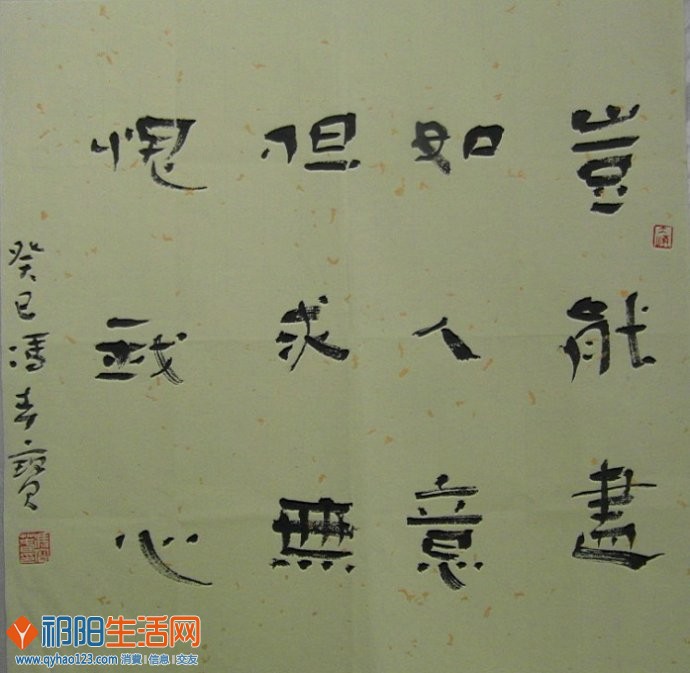 豈能盡
如人意
但求無
愧我心
癸巳馮春寶
祁阳生活网
www.qyhao123.com 消费 | 信息 | 交友